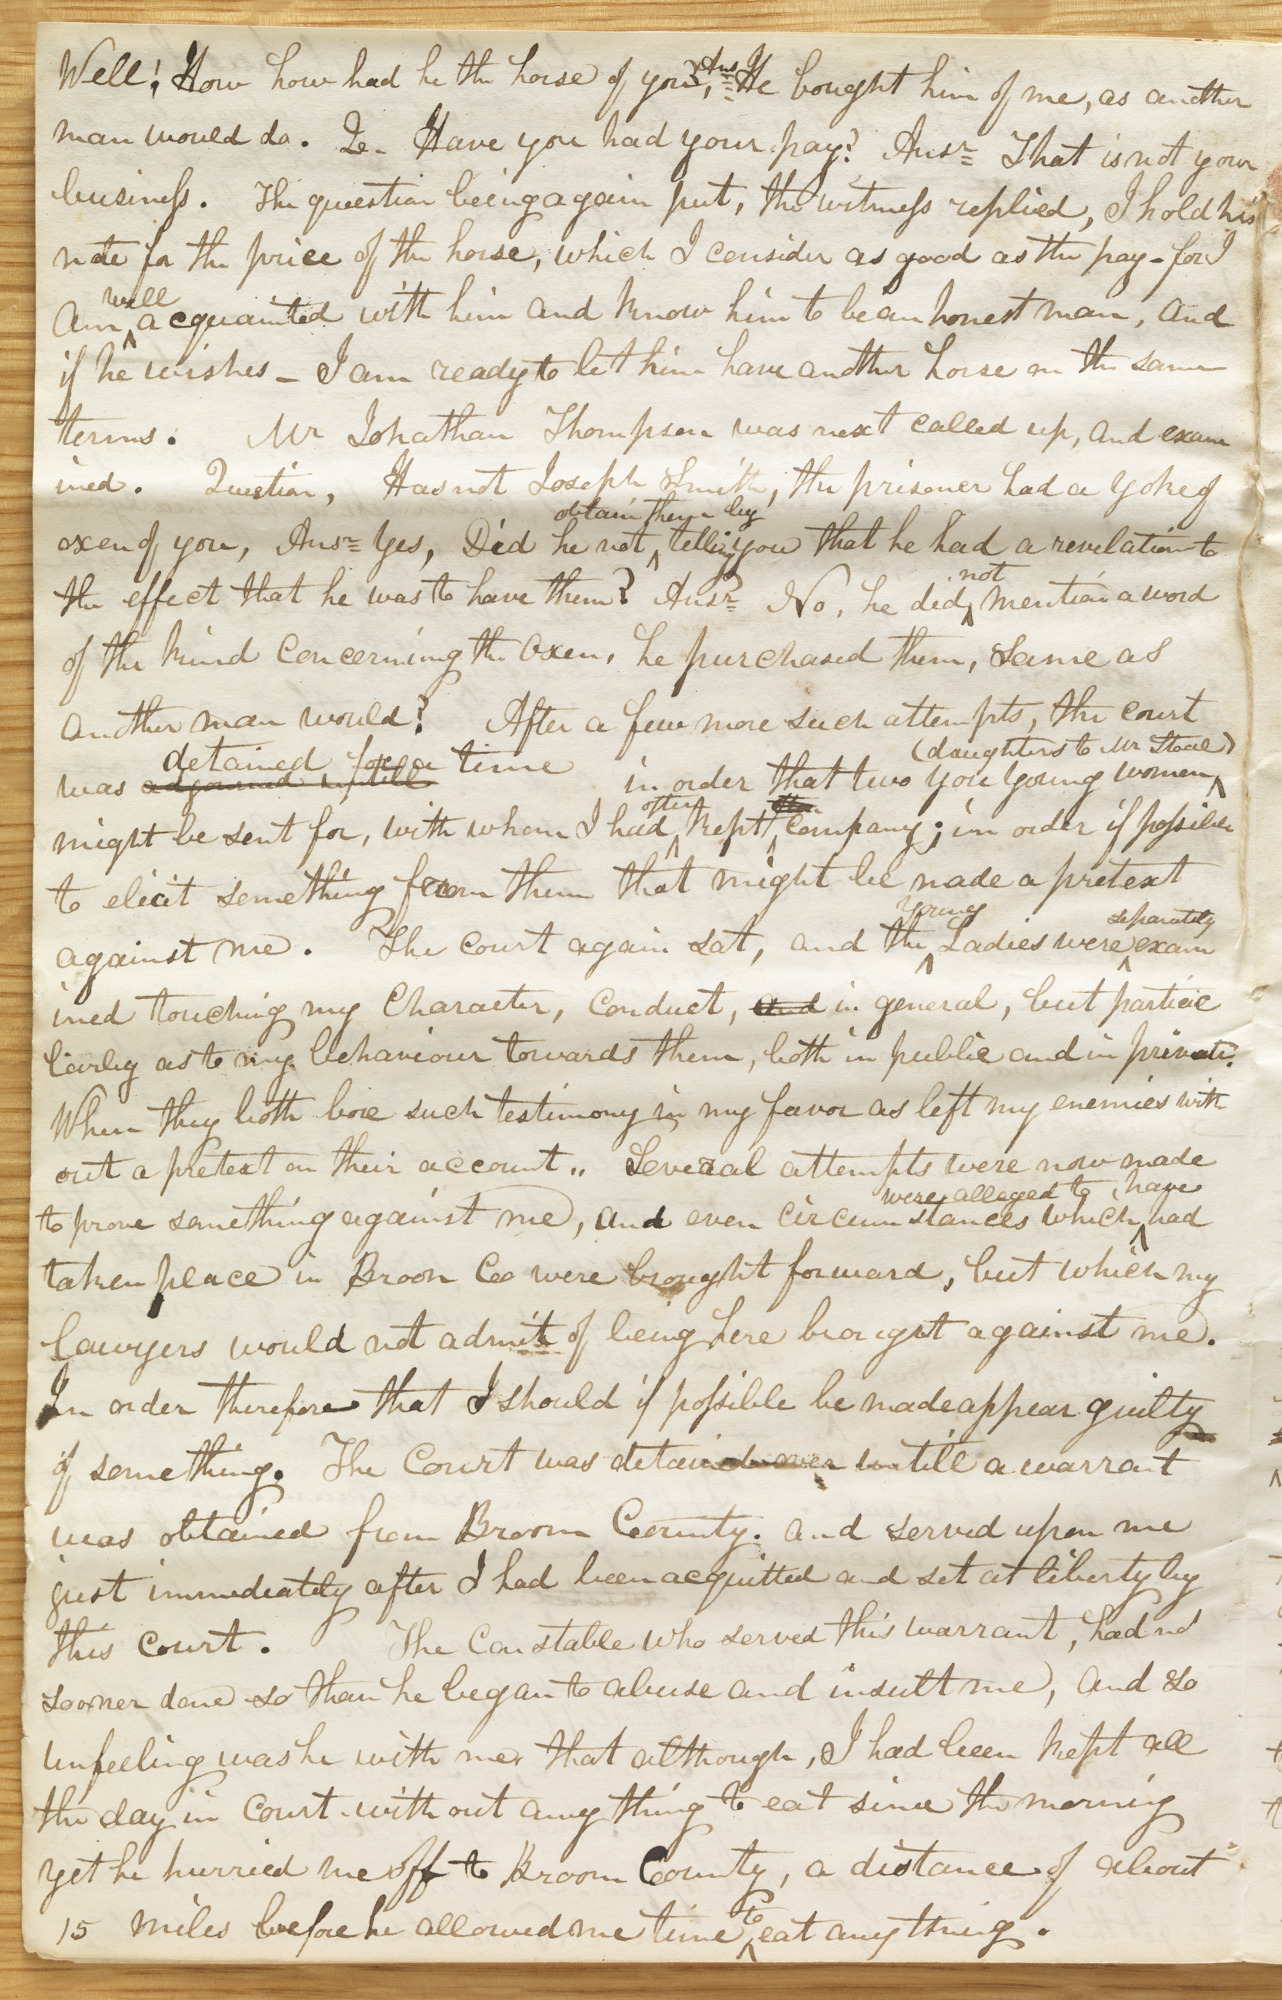 Well! How how had he the horse of you?, Ansr He bought him of me, as another
man would do. Q. Have you had your pay? Ansr That is not your
business. The question being again put, the witness replied, I hold his
note for the price of the horse, which I consider as good as the pay - for I
am well acquainted with him and know him to be an honest man, and
if he wishes - I am ready to let him have another horse on the same
terms. Mr Johathan Thompson was next called up, and exam
ined. Question, Has not Joseph Smith, the prisoner had a yoke of
oxen of you, Ansr Yes, Did he not obtain them by telling you that he had a revelation to
the effect that he was to have them? Ansr No, he did not mention a word
of the kind concerning the oxen, he purchased them, same as
another man would? After a few more such attempts, the court
was adjourned untill detained for a time in order that two you young women (daughters to Mr Stoal)
might be sent for, with whom I had often kept company; in order if possible
to elicit something from them that might be made a pretext
against me. The court again sat, and the young Ladies were separately exam
ined touching my character, conduct, and in general, but particu
larly as to my behaviour towards them, both in public and in private.
When they both bore such testimony in my favor as left my enemies with
out a pretext on their account.. Several attempts were now made
to prove something against me, and even circumstances which were alleged to have had
taken place in Broom Co were brought forward, but which my
lawyers would not admit of being here brought against me.
In order therefore that I should if possible be made appear guilty
of something. The Court was detained over untill a warrant
was obtained from Broom County. and served upon me
just immediately after I had been acquitted and set at liberty by
this court. The Constable who served this warrant, had no
sooner done so than he began to abuse and insult me, and so
unfeeling was he with me, that although, I had been kept all
the day in court without any thing to eat since the morning
yet he hurried me off to Broom County, a distance of about
15 miles before he allowed me time to eat any thing.